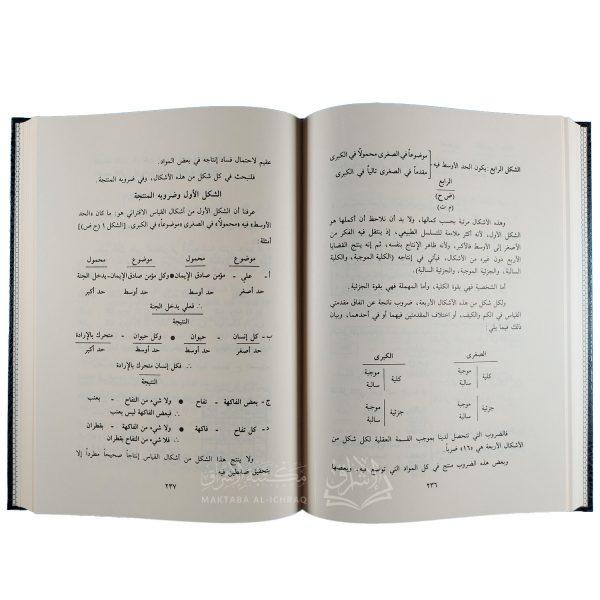 الشكل الرابع: يكون الحد الأوسط فيه
موضوعاً في الصغرى محمولاً في الكبرى
مقدماً في الصغرى تالياً في الكبرى
الرابع
(ض ح)
(م ت)
وهذه الأشكال مرتبة بحسب كمالها، ولا بد أن نلاحظ أن أكملها هو
الشكل الأول، لأنه أكثر ملاءمة للتسلسل الطبيعي، إذ ينتقل فيه الفكر من
الأصغر إلى الأوسط فالأكبر، ولأنه ظاهر الإنتاج بنفسه، ثم إنه ينتج القضايا
الأربع دون غيره من الأشكال، فيأتي في إنتاجه (الكلية الموجبة، والكلية
السالبة، والجزئية الموجبة، والجزئية السالبة).
أما الشخصية فهي بقوة الكلية، وأما المهملة فهي بقوة الجزئية.
ولكل شكل من هذه الأشكال الأربعة، ضروب ناتجة عن اتفاق مقدمتي
القياس في الكم والكيف، أو اختلاف المقدمتين فيهما أو في أحدهما، وبيان
ذلك فيما يلي:
الصغرى الكبرى
كلية موجبة كلية موجبة
سالبة سالبة
جزئية موجبة جزئية موجبة
سالبة سالبة
فالضروب التي تتحصل لدينا بموجب القسمة العقلية لكل شكل من
الأشكال الأربعة هي «١٦» ضرباً.
وبعض هذه الضروب منتج في كل المواد التي توضع فيه، وبعضها
٢٣٦
عقيم لاحتمال فساد إنتاجه في بعض المواد.
فلنبحث في كل شكل من هذه الأشكال، وفي ضروبه المنتجة.
الشكل الأول وضروبه المنتجة
عرفنا أن الشكل الأول من أشكال القياس الاقتراني هو: ما كان «الحد
الأوسط» فيه «محمولاً» في الصغرى «موضوعاً» في الكبرى. [الشكل ١ (ح ض)]
أمثلة:
موضوع محمول موضوع محمول
أ- علي - مؤمن صادق الإيمان • وكل مؤمن صادق الإيمان - يدخل الجنة
حد أصغر حد أوسط حد أوسط حد أكبر
∴ فعلي يدخل الجنة
النتيجة
ب- كل إنسان - حيوان • وكل حيوان - متحرك بالإرادة
حد أصغر حد أوسط حد أوسط حد أكبر
∴ فكل إنسان متحرك بالإرادة
النتيجة
ج- بعض الفاكهة - تفاح • ولا شيء من التفاح - بعنب
∴ فبعض الفاكهة ليس بعنب
د- كل تفاح - فاكهة • ولا شيء من الفاكهة - بقطران
∴ فلا شيء من التفاح بقطران
ولا ينتج هذا الشكل من أشكال القياس إنتاجاً صحيحاً مطرداً إلا
بتحقيق ضابطين فيه:
٢٣٧
مكتبة الإشراق
MAKTABA AL-ICHRAQ